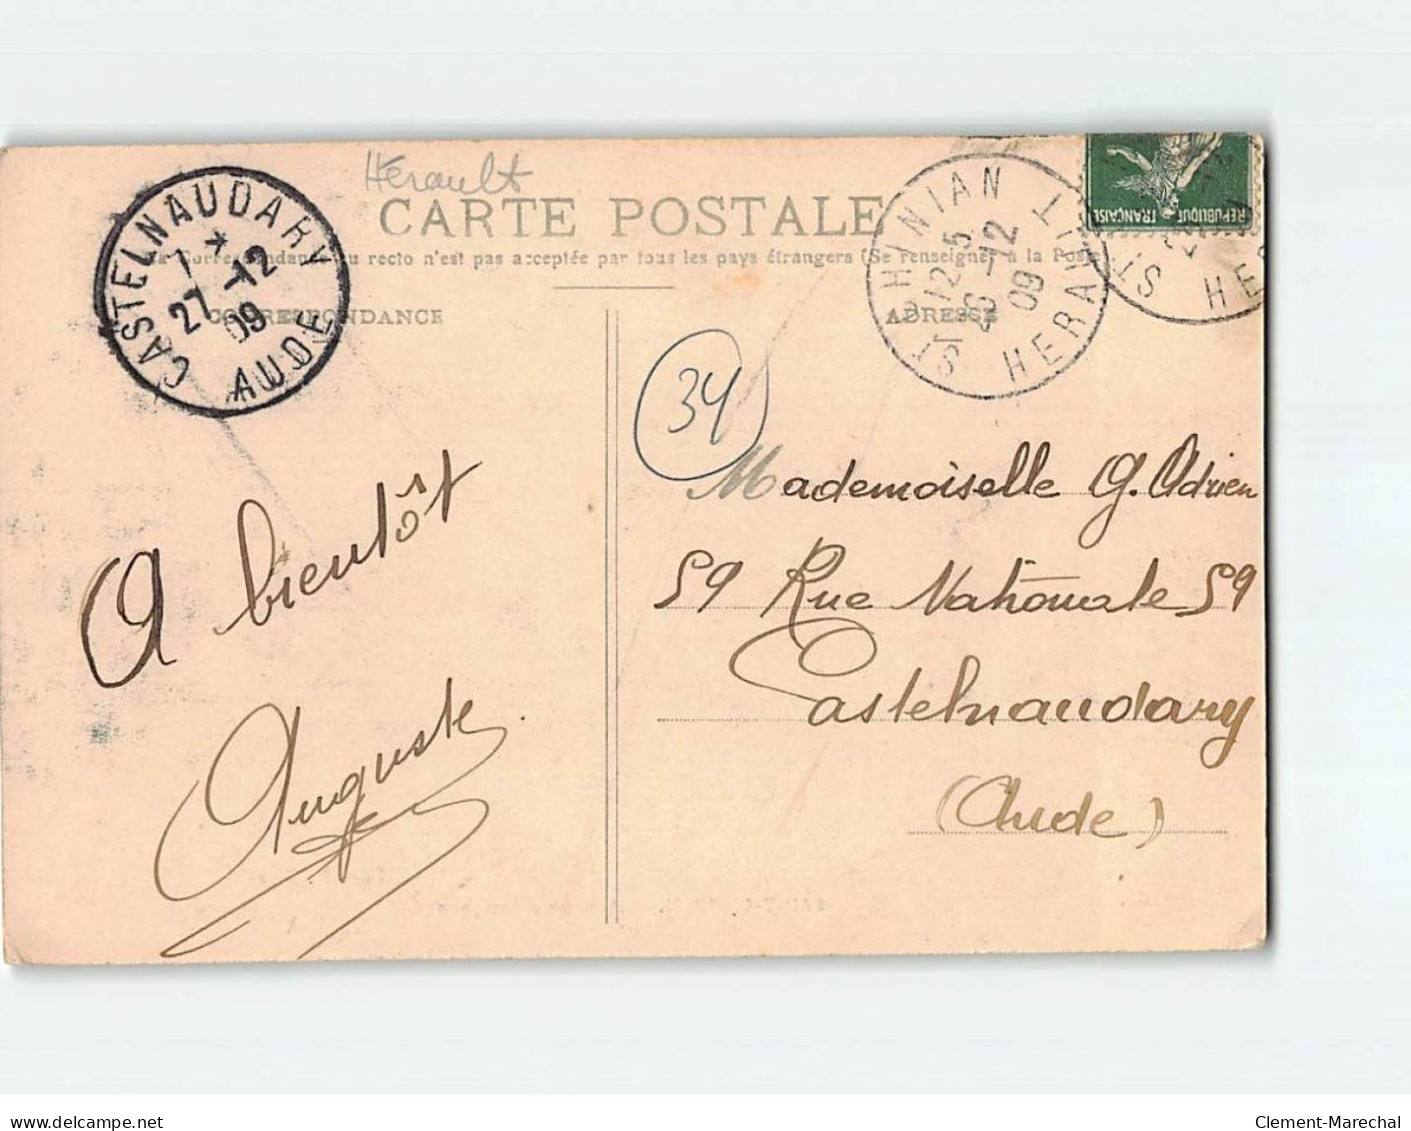 Hérault
CARTE POSTALE
La Correspondance au recto n'est pas acceptée par tous les pays étrangers (Se renseigner à la Poste)
CORRESPONDANCE
ADRESSE
CASTELNAUDARY
1 *
27 -12
09
AUDE
ST CHINIAN
12 5
26 -12
09
HERAULT
ST
HE
REPUBLIQUE
FRANÇAISE
34
A bientôt
Auguste
Mademoiselle G. Adrien
59 Rue Nationale 59
Castelnaudary
(Aude)
delcampe.net
Clement-Marechal